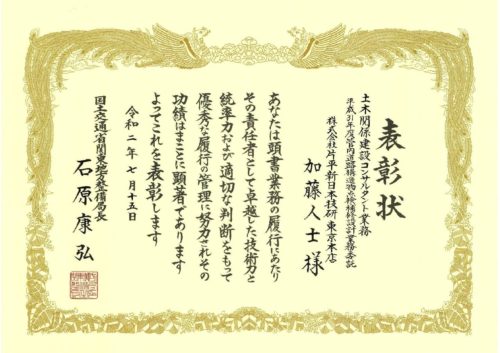 表彰状
土木関係建設コンサルタント業務
平成31年度管内道路構造物点検補修設計業務委託
株式会社片平新日本技研 東京本店
加藤人士様
あなたは頭書業務の履行にあたり
その責任者として卓越した技術力と
統率力および適切な判断をもって
優秀な履行の管理に努力されその
功績はまことに顕著であります
よってこれを表彰します
令和二年七月十五日
国土交通省関東地方整備局長
石原康弘